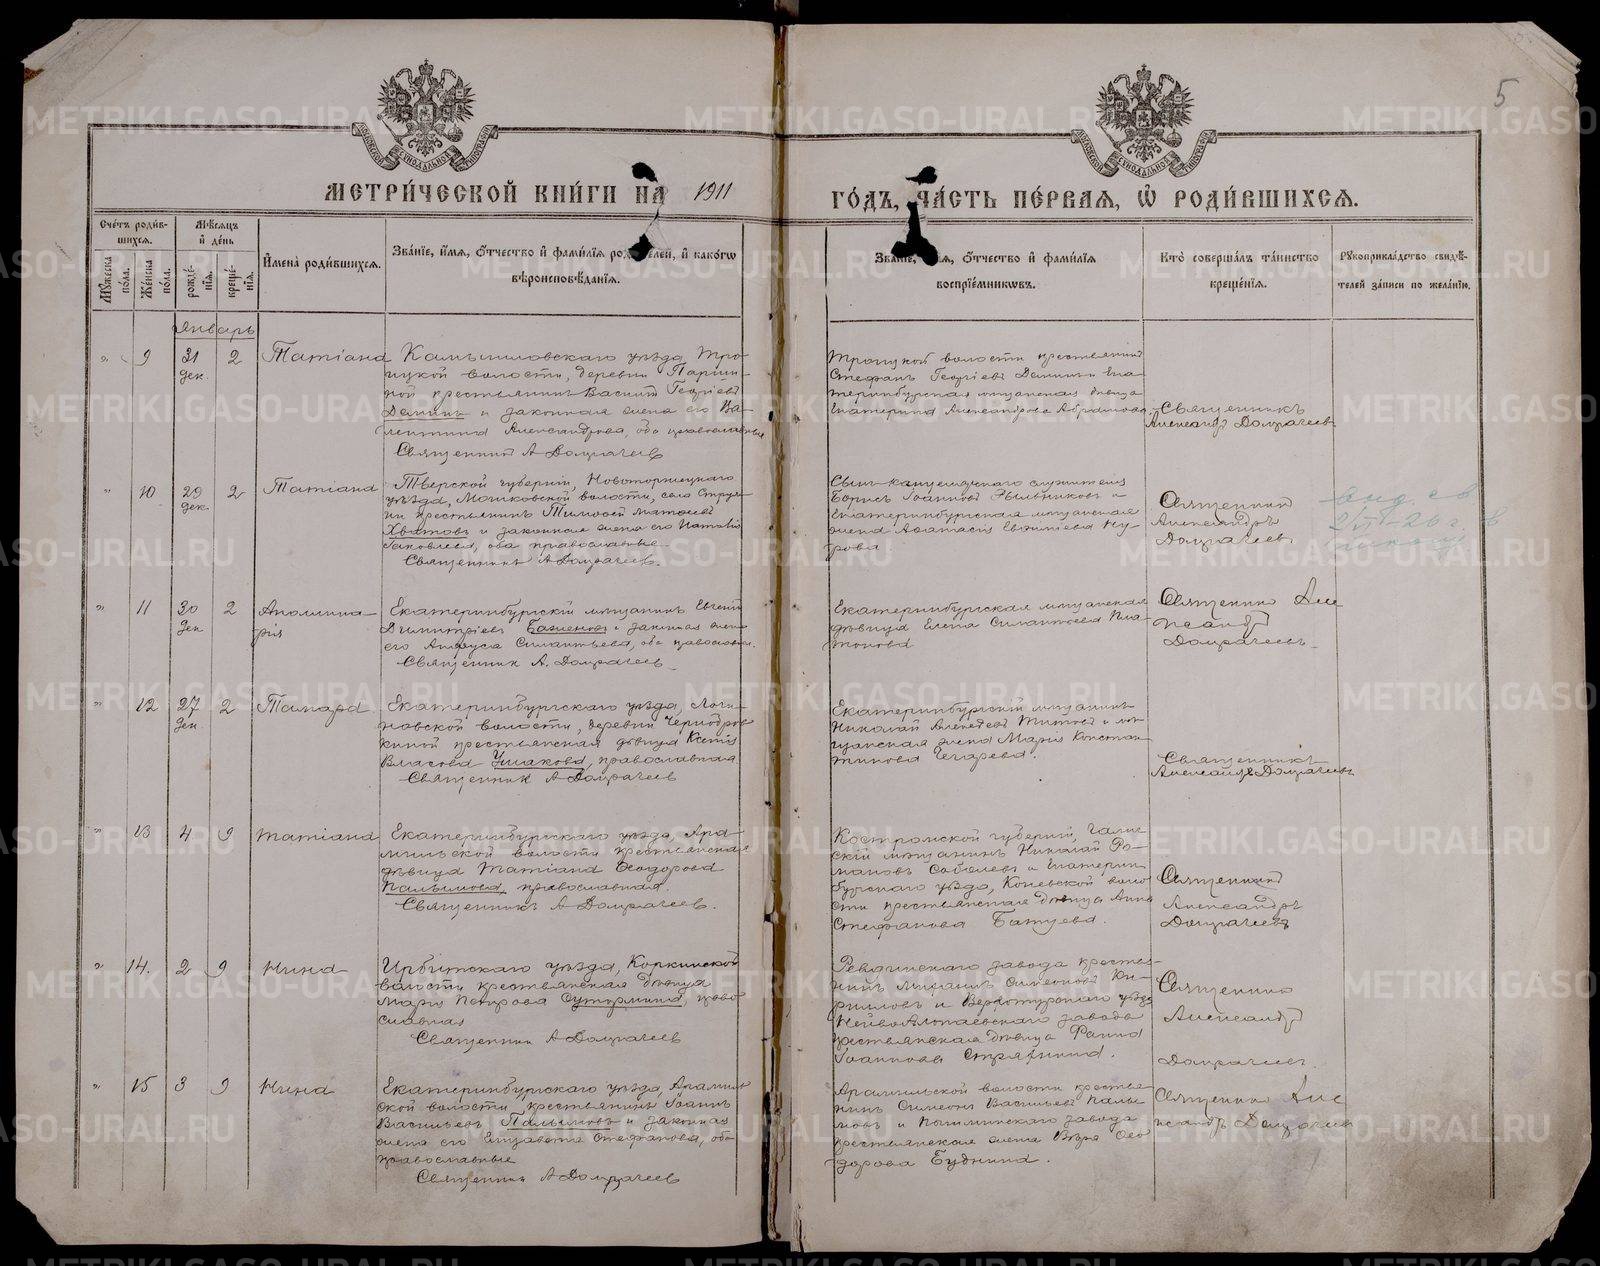 5
МЕТРИ́ЧЕСКОЙ КНИ́ГИ НА 1911
ГО́ДЪ, ЧА́СТЬ ПЕ́РВАѦ, Ѡ РОДИ́ВШИХСѦ.
Сче́тъ роди́в-
шихсѧ.
Мꙋ́жеска по́ла.
Же́нска по́ла.
Мѣ́сѧцъ
и҆ де́нь
рожде́-
нїѧ.
креще́-
нїѧ.
И҆мена̀ роди́вшихсѧ.
Зва́нїе, и҆́мѧ, ѻ҆́тчество и҆ фами́лїѧ роди́телей, и҆ како́гѡ
вѣроисповѣ́данїѧ.
Зва́нїе, и҆́мѧ, ѻ҆́тчество и҆ фами́лїѧ
воспрїе́мникѡвъ.
Кто̀ соверша́лъ та́инство
креще́нїѧ.
Рꙋкоприкла́дство свидѣ́-
телей за́писи по жела́нїю.
Январь
" 9 31 дек. 2 Татiана
Камышловскаго уѣзда, Тро-
ицкой волости, деревни Парши-
ной крестьянинъ Василiй Георгiевъ
Деминъ и законная жена его Ва-
лентина Александрова, оба православные
Священникъ А Домрачеев
Троицкой волости крестьянинъ
Стефанъ Георгiевъ Деминъ и Ека-
теринбургская мѣщанская дѣвица
Екатерина Александрова Абрамова
Священникъ
Александръ Домрачеевъ
" 10 29 дек. 2 Татiана
Тверской губернiи, Новоторжецкаго
уѣзда, волости, село
крестьянинъ Тимофей Матѳеевъ
Хватовъ и законная жена его Наталiя
Яковлева, оба православные.
Священникъ А Домрачеевъ.
Сынъ канцелярскаго служителя
Борисъ Iоанновъ и
Екатеринбургская мѣщанская
жена Аѳанасiя Евѳимiева Ку-
рова
Священникъ
Александръ
Домрачеевъ
" 11 30 Дек 2 Аполлина-
рiя
Екатеринбургскiй мѣщанинъ Евгенiй
Димитрiевъ Баженовъ и законная жена
его Силантьева, оба православные.
Священник А. Домрачеевъ
Екатеринбургская мѣщанская
дѣвица Елена Силантьева Пла-
тонова
Священникъ Але
ксандръ
Домрачеевъ
" 12 27 Дек 2 Тамара
Екатеринбургскаго уѣзда, Логи-
новской волости, деревни Чернобров-
киной крестьянская дѣвица Ксенiя
Власова Ушакова, православная
Священникъ А Домрачеевъ
Екатеринбургскiй мѣщанинъ
Николай Алексѣевъ Титовъ и мѣ-
щанская жена Марiя Констан-
тинова
Священникъ
Александръ Домрачеевъ
" 13 4 9 Татiана
Екатеринбургскаго уѣзда, Ара-
мильской волости крестьянская
дѣвица Татiана Ѳеодорова
Пальцимова, православная.
Священникъ А Домрачеев.
Костромской губернiи, Галич-
скiй мѣщанинъ Николай Ро-
мановъ Соболевъ и Екатерин-
бургскаго уѣзда, Коневской воло-
сти крестьянская дѣвица Анна
Стефанова Батуева.
Священникъ
Александръ
Домрачеевъ
" 14. 2 9 Нина
Ирбитскаго уѣзда, Коркинской
волости крестьянская дѣвица
Марiя Петрова Сутормина, право-
славная
Священник А Домрачеевъ
Ревдинскаго завода крестья-
нинъ Михаилъ Симеоновъ Ки-
рилловъ и Верхотурскаго уѣзда
НейвоАлапаевскаго завода
крестьянская дѣвица Фаина
Iоаннова Стряпнина.
Священникъ
Александръ
Домрачеевъ.
" 15 3 9 Нина
Екатеринбургскаго уѣзда, Арамиль-
ской волости крестьянинъ Iоаннъ
Васильевъ Пальцимовъ и законная
жена его Елизавета Стефанова, оба
православные
Священник А Домрачеевъ
Арамильской волости крестья-
нинъ Симеонъ Васильевъ Пальци-
мовъ и завода
крестьянская жена Вѣра Ѳео-
дорова Буднина.
Священникъ Але
ксандръ Домрачеев
METRIKI.GASO-URAL.RU